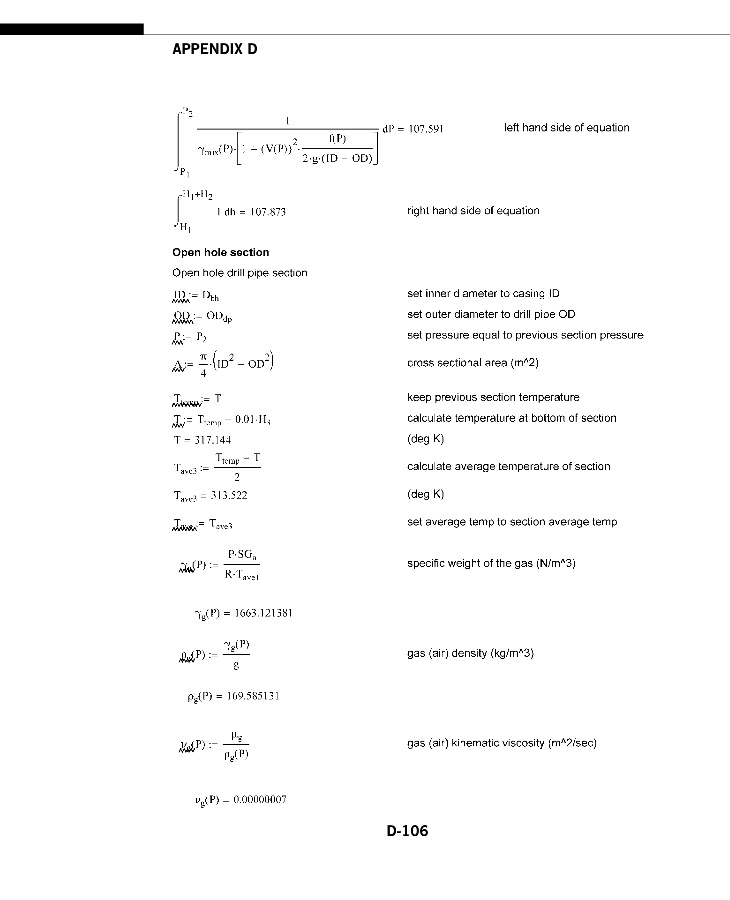 APPENDIX D
∫_{P₁}^{P₂} 1 / (γ_mix(P)·[1 + (V(P))²·f(P) / (2·g·(ID − OD))]) dP = 107.591 left hand side of equation
∫_{H₁}^{H₁+H₂} 1 dh = 107.873 right hand side of equation
Open hole section
Open hole drill pipe section
ID := D_bh set inner diameter to casing ID
OD := OD_dp set outer diameter to drill pipe OD
P := P₂ set pressure equal to previous section pressure
A := π/4·(ID² − OD²) cross sectional area (m^2)
T_temp := T keep previous section temperature
T := T_temp + 0.01·H₃ calculate temperature at bottom of section
T = 317.144 (deg K)
T_ave3 := (T_temp + T) / 2 calculate average temperature of section
T_ave3 = 313.522 (deg K)
T_ave := T_ave3 set average temp to section average temp
γ_g(P) := P·SG_a / (R·T_ave1) specific weight of the gas (N/m^3)
γ_g(P) = 1663.121381
ρ_g(P) := γ_g(P) / g gas (air) density (kg/m^3)
ρ_g(P) = 169.585131
ν_g(P) := μ_g / ρ_g(P) gas (air) kinematic viscosity (m^2/sec)
ν_g(P) = 0.00000007
D-106